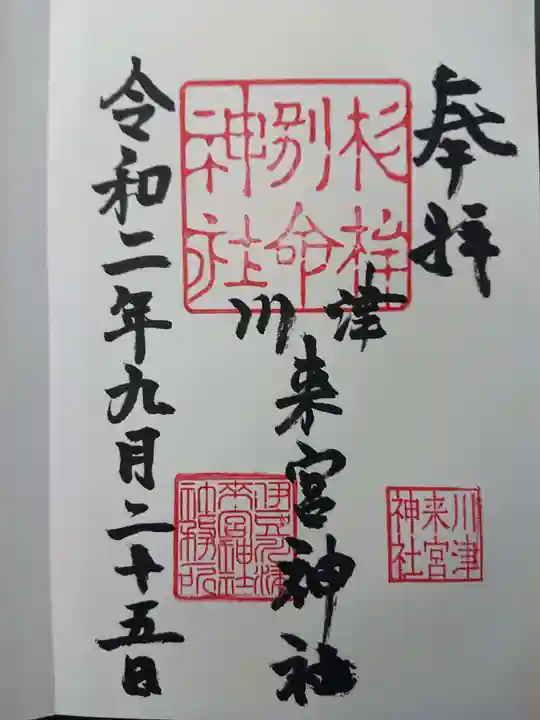 奉拝
杉桙
別命
神社
川津
来宮神社
川津
来宮
神社
来宮神社
社務所
令和二年九月二十五日